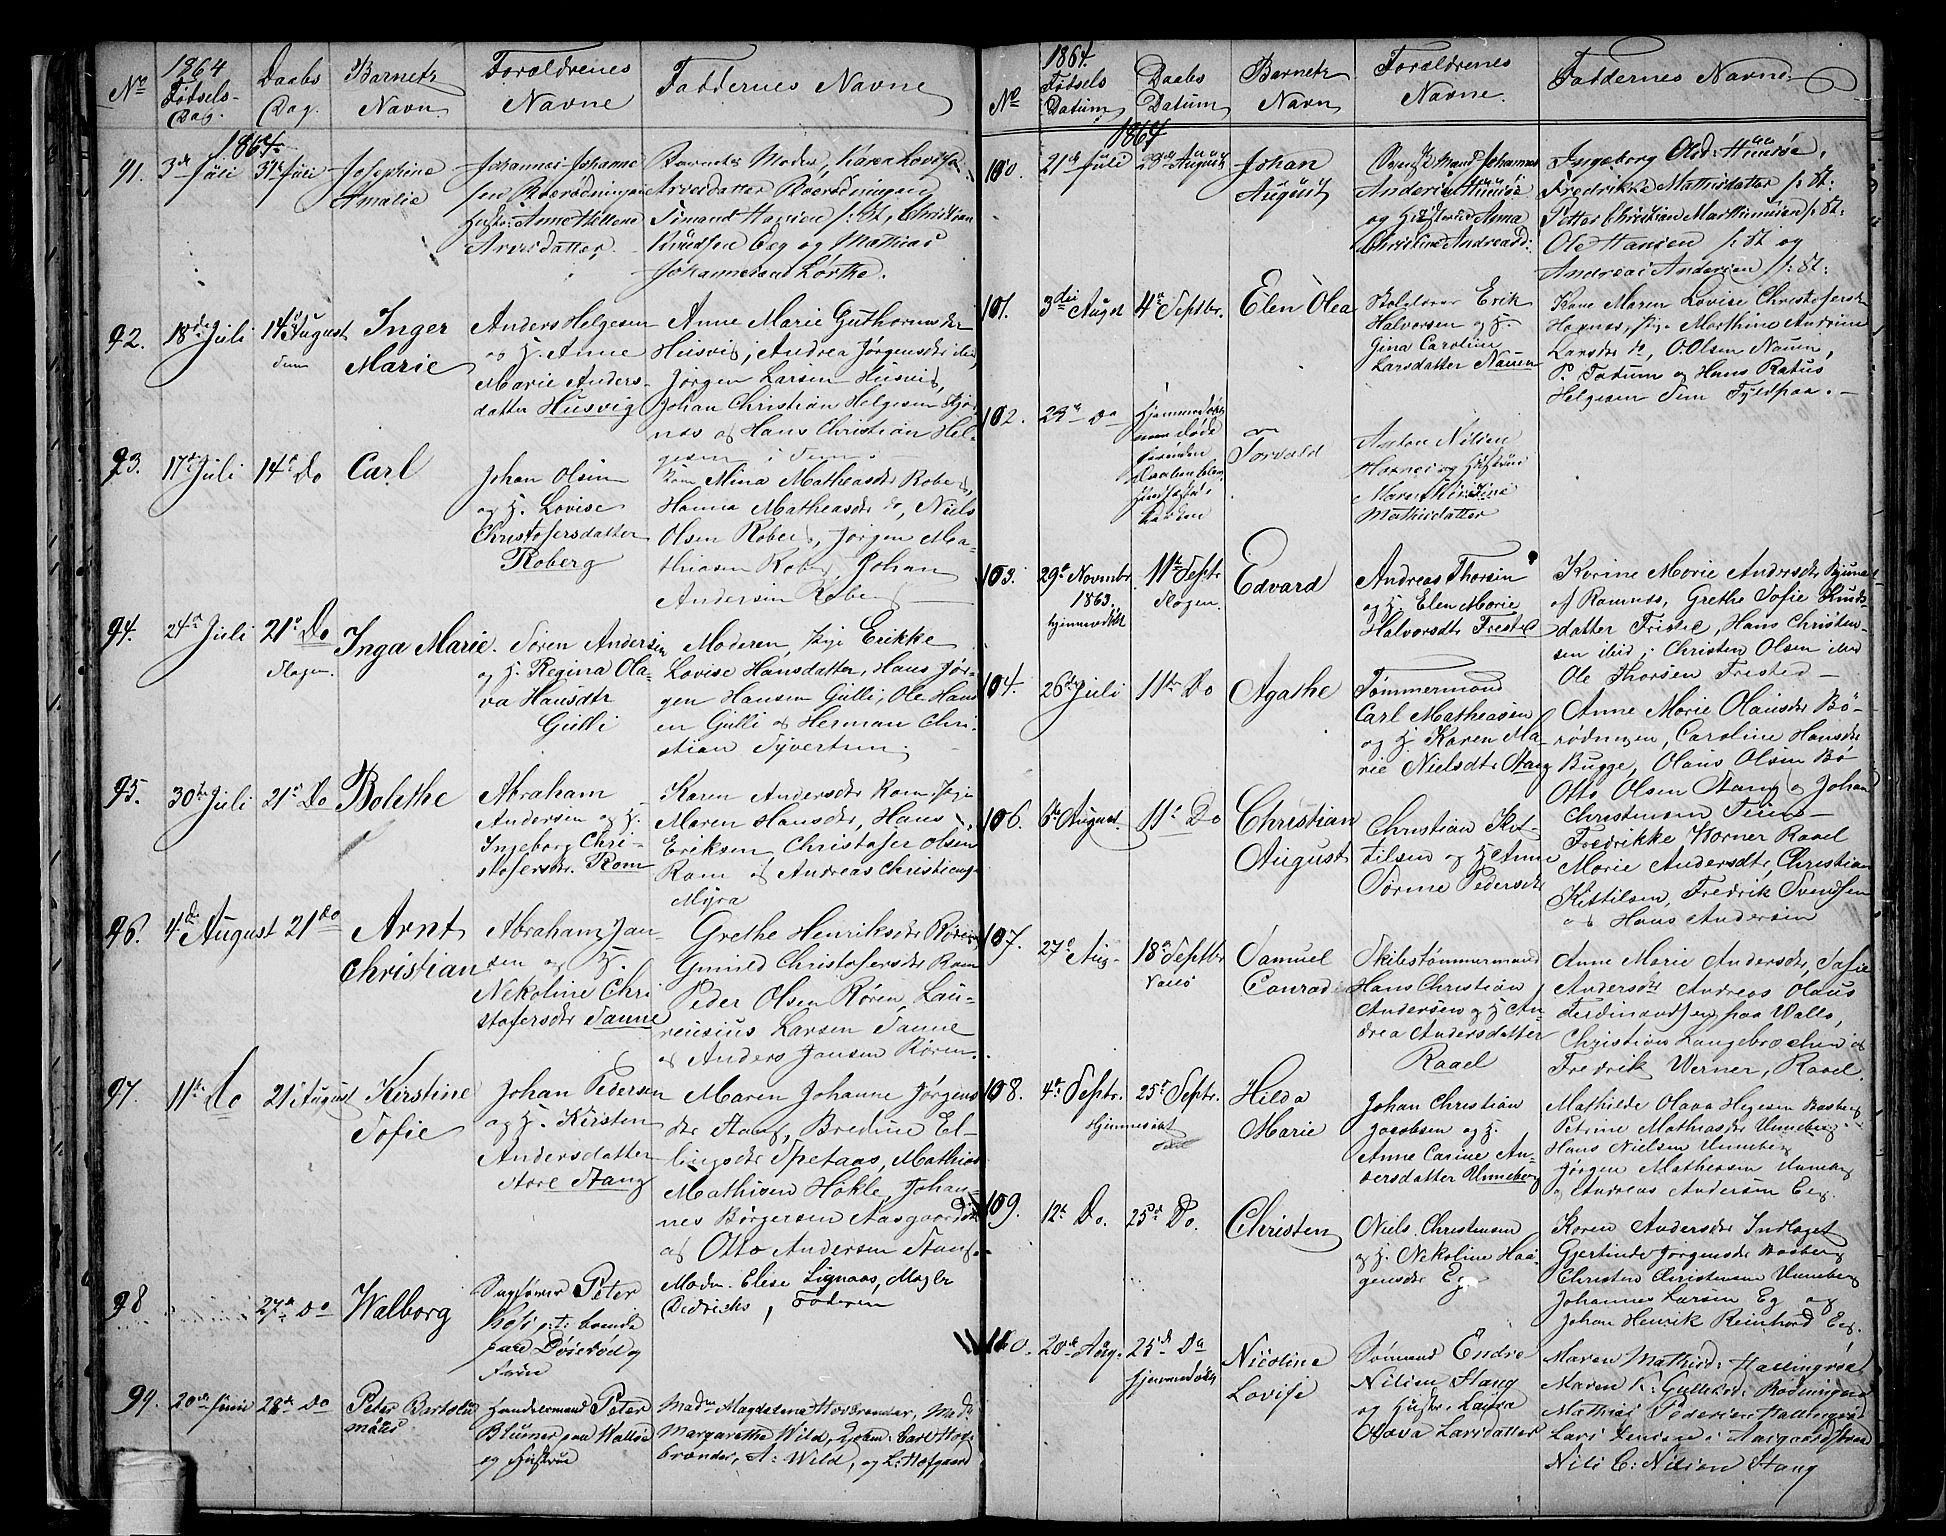 No
1864
Fødsels-
Dag.
Daabs
Dag.
Barnets
Navn
Forældrenes
Navne
Faddernes Navne
1864
91.
3de Juli
31te Juli
Josephine
Amalie
Johannes Johanne
sen Børødningen
Hustr: Anne Hellene
Arvesdatter
Barnets Moder, Karen Lovisa
Arvesdatter Børødningen
Simand Hansen /: St, Christian
Knudsen Eeg og Mathias
Johannesen Lørthe.
92.
18de Juli
14de August
Sem
Inger
Marie
Anders Helgesen
og H. Anne
Marie Anders-
datter Husvig
Anne Marie Guthormsdtr
Husvig, Andrea Jørgensdtr ibid,
Jørgen Larsen Husvig,
Johan Christian Helgesen
og Hans Christian Hel-
gesen i Sem
93.
17de Juli
14de Do
Carl
Johan Olsen
og H. Lovise
Christofersdatter
Roberg
Mina Matheasdtr Roberg,
Hanna Matheasdtr do, Niels
Olsen Roberg, Jørgen Ma-
thiasen Roberg Johan
Andersen Roberg
94.
24de Juli
21de Do
Slagen.
Inga Marie.
Søren Andersen
og H. Regina Ola-
va Hansdtr
Gulli
Moderen, Pige Erikke
Lovise Hansdatter, Hans Jør-
gen Hansen Gulli, Ole Hans
en Gulli og Herman Chri-
stian Syvertsen.
95.
30te Juli
21de Do
Bolethe
Abraham
Andersen og H.
Ingeborg Chri-
stofersdtr. Rom
Karen Andersdtr Rom, Pige
Maren Hansdtr, Hans
Eriksen, Christofer Olsen
Rom og Andreas Christians-
Myra
96.
4de August
21de do
Arnt
Christian
Abraham Jan-
sen og H.
Nekoline Chri
stofersdtr Sanne
Grethe Henriksdtr Røren
Gunild Christofersdtr Rom
Peder Olsen Røren, Lau-
rensius Larsen Sanne
og Anders Jansen Røren.
97.
11te Do
21de August
Kirstine
Sofie
Johan Pedersen
og H. Kirsten
Andersdatter
Store Stang
Maren Johanne Jørgens
dtr Stang, Bredine El-
lingsdtr Spetaas, Mathias
Mathisen Høkle, Johan-
nes Børgersen Aasgaard
og Otto Andersen Stang.
98
27de Do
Walborg
Peter
og
Fruen
Madm. Elise Lignaas,
Didrichs, Faderen
99.
20de Juni
28de Do
Peter Bartolo
mæus
Handelsmand Peter
Blumer paa Vallø
og Hustrue
Madme Magdalena Hovbrender, Mad:
Margarethe Wild, Carl Hof-
brender, A: Wild, og L: Hofgaard
No
1864.
Fødsels
Datum
Daabs
Datum
Barnets
Navn
Forældrenes
Navne.
Faddernes Navne
1864
100.
21de Juli
August
Johan
August
Johannes
Andersen Husøe
og Hustrue Anna
Christine Andreasd:
Ingeborg Olsd: Husøe,
Fredrikke Mathisdatter /: St:
Petter Christian Marthinusen /: St:
Ole Hansen /: St og
Andreas Andersen /: St:
101.
3die August
4de Septbr.
Elen Olea
Erik
Halvorsen og H.
Gina Caroline
Larsdatter Nauen
Kone Maren Lovise Christofersdt
Haxnes, Pige Marthine Andrine
Larsdtr do, O. Olsen Nauen,
P. Tatum og Hans Ratus
Helgesen Sem Fyldpaa.
102.
29de Do
Hjemmedøbt
men døde
forinden
Daaben blev
i
Kirken
Torvald
Anton Nilsen
Haxnes og Hustrue
Maren Christine
Mathisdatter
103.
29de Novmbr.
1863
hjemmedøbt
11te Septr
Slagen.
Edvard
Andreas Thorsen
og H. Elen Marie
Halvorsdtr Fresteд
Karine Marie Andersdtr
af Ramnes, Grethe Sofie Knuds-
datter Fristed, Hans Christen-
sen ibid, Christen Olsen ibid
Ole Thorsen Fristed
104.
26de Juli
11te Do
Agathe
Tømmermand
Carl Matheasen
og H. Karen Ma-
rie Nielsdtr Stang
Anne Marie Olausdtr Bø-
rødningen, Caroline Hansdtr
Bugge, Olaus Olsen Bø
Otto Olsen Stang og Johan
Christensen Teien
106.
6te August.
11te Do
Christian
August
Christian Kit-
tilsen og H Anne
Sørine Pedersdtr
Fredrikke Worner Raael
Marie Andersdtr, Christian
Kittilsen, Fredrik Svendsen
og Hans Andersen
107.
27de Aug.
18de Septbr
Vallø
Samuel
Conrad
Skibstømmermand
Hans Christian
Andersen og H An-
drea Andersdatter
Raael
Anne Marie Andersdtr, Sofie
Andersdtr Andreas Olaus
Ferdinandsen paa Vallø,
Christian Langebrechen og
Fredrik Werner, Raael.
108.
4de Septr.
25de Septr.
Hjemmedøbt
Hilda
Marie
Johan Christian
Jacobsen og H.
Anne Carine An-
dersdatter Unneberg
Mathilde Olava Hegesen Basberg
Petrine Mathiasdtr Unneberg
Hans Nielsen Unneberg
Jørgen Mathesen Unneberg
og Andreas Andersen Eeg.
109.
12te Do.
25de Do.
Christen
Niels Christensen
og H. Nekoline Haa-
gensdtr Eeg
Karen Andersdtr Indlaget
Gjertinde Jørgensdtr Basberg
Christen Christensen Unneberg
Johannes Larsen Eg og
Johan Henrik Reinhard Eeg.
110.
20de Aug.
25de Do
hjemmedøbt
Nicoline
Lovise
Sømand Endre
Nilsen Stang
og Hustr: Laura
Olava Larsdatter
Maren Mathisd: Hallingsrød
Maren K: Gulliksd: Rødningen
Mathias Pedersen Hallingsrød
Lars Jensen i Aasgaardstrand
Nils E: Nilsen Stang